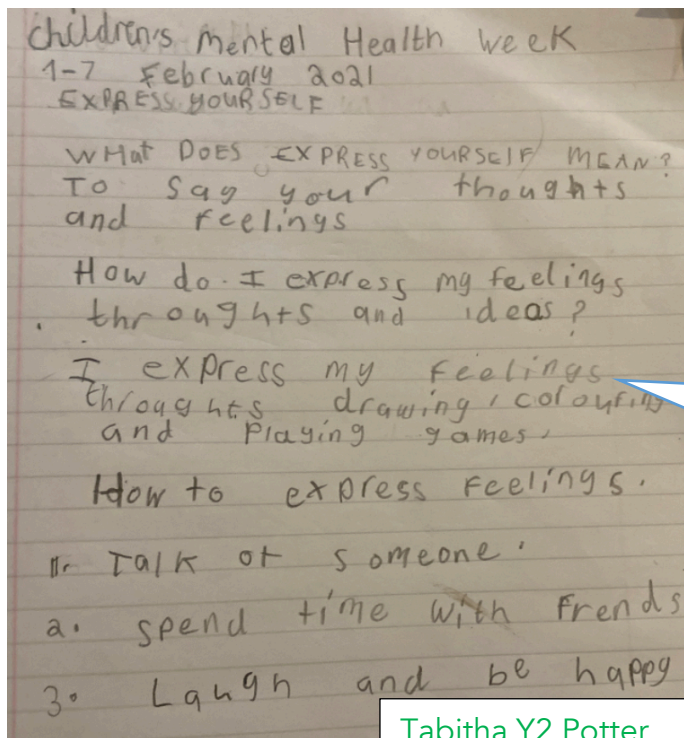 children's mental Health week
1-7 February 2021
EXPRESS YOURSELF
WHat DOES EXPRESS YOURSELF MEAN?
To say your thoughts
and feelings
How do I express my feelings
throughts and ideas?
I express my feelings
throughts drawing, colouring
and Playing games.
How to express feelings.
1. Talk ot someone.
2. spend time with Frends
3. Laugh and be happy
Tabitha Y2 Potter